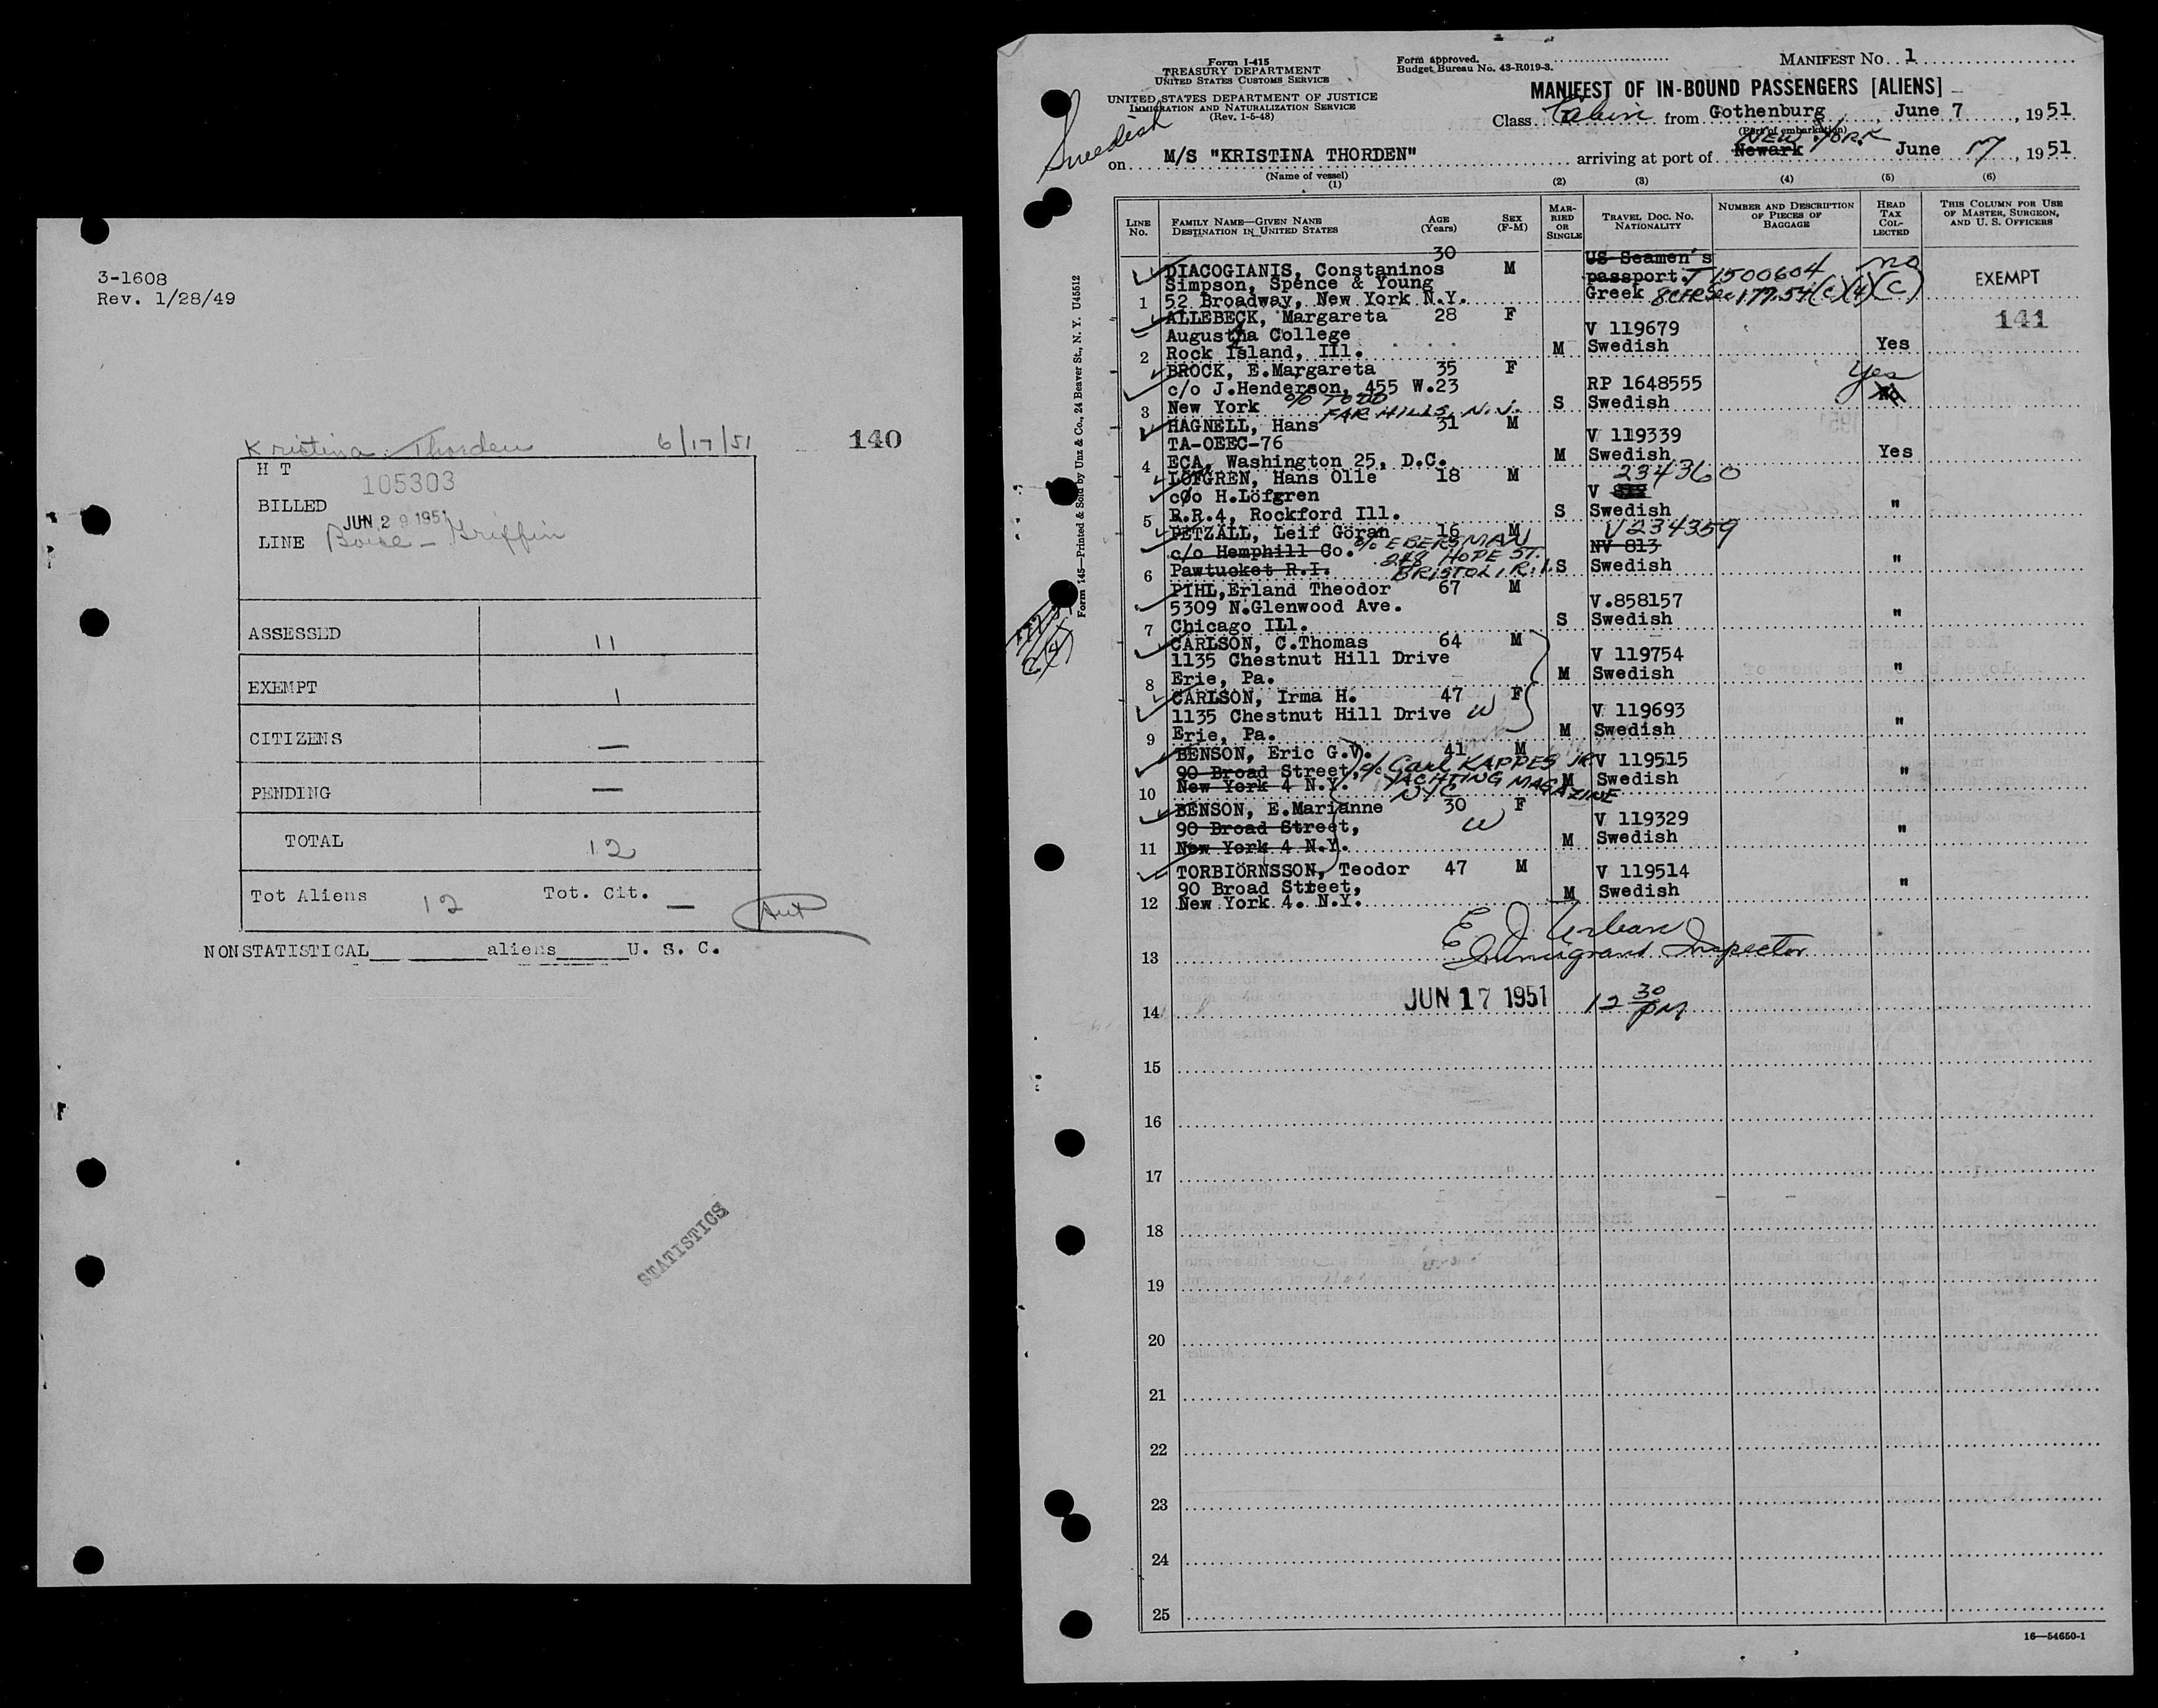 3-1608
Rev. 1/28/49
Kristina Thorden 6/17/51 140
H T
105303
BILLED
JUN 29 1951
LINE Boise - Griffin
ASSESSED 11
EXEMPT 1
CITIZENS —
PENDING —
TOTAL 12
Tot Aliens 12 Tot. Cit. —
NONSTATISTICAL aliens U. S. C.
STATISTICS
Form I-415
TREASURY DEPARTMENT
UNITED STATES CUSTOMS SERVICE
UNITED STATES DEPARTMENT OF JUSTICE
IMMIGRATION AND NATURALIZATION SERVICE
(Rev. 1-5-48)
Form approved.
Budget Bureau No. 43-R019-3.
MANIFEST NO. 1
MANIFEST OF IN-BOUND PASSENGERS [ALIENS]
Class Cabin from Gothenburg, June 7, 1951
(Port of embarkation)
Swedish
on M/S "KRISTINA THORDEN" arriving at port of Newark NEW YORK June 17, 1951
(Name of vessel)
(1) (2) (3) (4) (5) (6)
LINE NO. FAMILY NAME—GIVEN NAME DESTINATION IN UNITED STATES AGE (Years) SEX (F-M) MARRIED OR SINGLE TRAVEL DOC. NO. NATIONALITY NUMBER AND DESCRIPTION OF PIECES OF BAGGAGE HEAD TAX COLLECTED THIS COLUMN FOR USE OF MASTER, SURGEON, AND U. S. OFFICERS
30 US Seamen's
DIACOGIANIS, Constaninos M passport. J 1500604 no
Simpson, Spence & Young EXEMPT
1 52 Broadway, New York N.Y. Greek 8CFR Sec 177.54(c)(4)(C)
ALLEBECK, Margareta 28 F 141
Augustana College V 119679
2 Rock Island, Ill. M Swedish Yes
BROCK, E.Margareta 35 F Yes
c/o J.Henderson, 455 W.23 RP 1648555
3 New York c/o TODD FAR HILLS, N.J. S Swedish No
HAGNELL, Hans 31 M
TA-OEEC-76 V 119339
4 ECA, Washington 25, D.C. M Swedish Yes
LÖFGREN, Hans Olle 18 M 234360
c/o H.Löfgren V
5 R.R.4, Rockford Ill. S Swedish "
PETZÄLL, Leif Göran 16 M V234359
c/o Hemphill Co. c/o EBERSMAN NV 813
248 HOPE ST.
6 Pawtucket R.I. BRISTOL, R.I. S Swedish "
PIHL,Erland Theodor 67 M
5309 N.Glenwood Ave. V.858157
7 Chicago Ill. S Swedish "
CARLSON, C.Thomas 64 M
1135 Chestnut Hill Drive V 119754
8 Erie, Pa. M Swedish "
CARLSON, Irma H. 47 F
1135 Chestnut Hill Drive W V 119693
9 Erie, Pa. M Swedish "
BENSON, Eric G.V. 41 M
90 Broad Street, c/o Carl KAPPES JR V 119515
10 New York 4 N.Y. YACHTING MAGAZINE NYC M Swedish "
BENSON, E.Marianne 30 F
90 Broad Street, W V 119329
11 New York 4 N.Y. M Swedish "
TORBIÖRNSSON, Teodor 47 M V 119514
90 Broad Street, M Swedish "
12 New York 4. N.Y.
E. J. Urban
13 Immigrant Inspector
14 JUN 17 1951 12 30 PM
15
16
17
18
19
20
21
22
23
24
25
16—54650-1
Form 145—Printed & Sold by Unz & Co., 24 Beaver St., N. Y. U45512